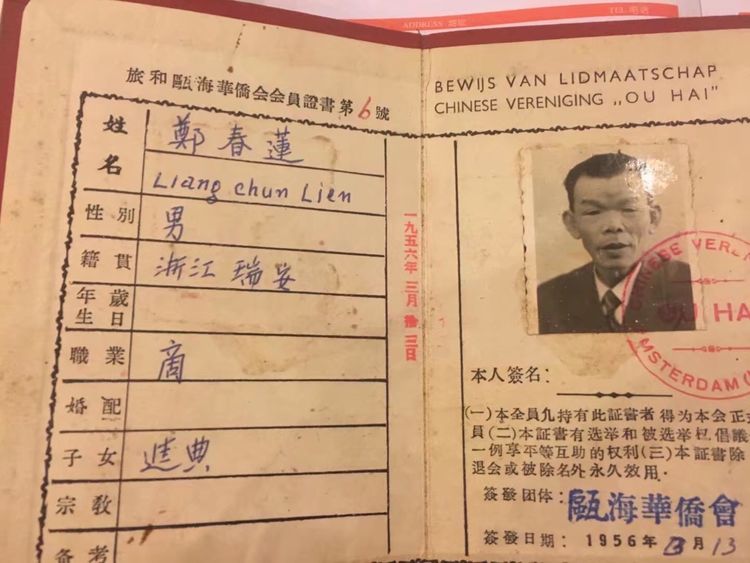 ADDRESS
TEL
旅和甌海華僑会会員證書第6號
姓名
鄭春蓮
Liang chun Lien
性別
男
籍貫
浙江瑞安
年歲
生日
職業
商
婚配
子女
宗教
備考
一九五六年三月拾三日
BEWIJS VAN LIDMAATSCHAP
CHINESE VERENIGING „OU HAI"
CHINESE VEREN
OU HA
AMSTERDAM
本人簽名：
(一)本会員凢持有此証書者得为本会正式
員(二)本証書有选举和被选举权倡議
一例享平等互助的权利(三)本証書除
退会或被除名外永久效用．
簽發团体：甌海華僑會
簽發日期：1956年3月13